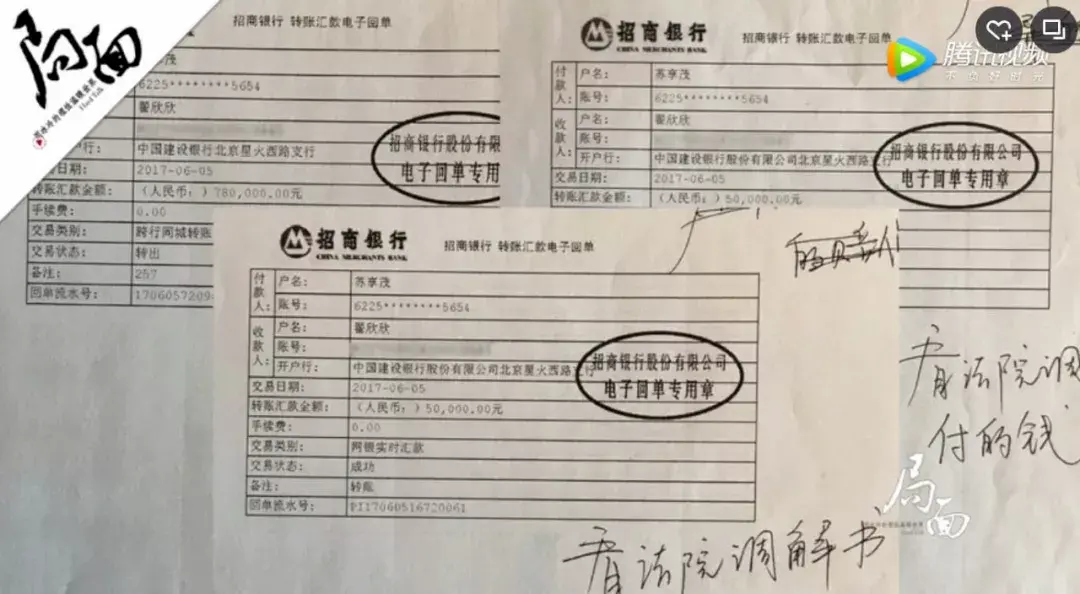 局面
Hard Talk
招商银行 转账汇款电子回单
茂
6225********5654
翟欣欣
户行: 中国建设银行北京星火西路支行
日期: 2017-06-05
转账汇款金额: (人民币:)780,000.00元
手续费: 0.00
交易类别: 跨行同城转账
交易状态: 转出
备注: 257
回单流水号: 170605720
招商银行股份有限
电子回单专用
招商银行
CHINA MERCHANTS BANK
招商银行 转账汇款电子回单
腾讯视频
不负好时光
付款人: 户名: 苏享茂
账号: 6225********5654
收款人: 户名: 翟欣欣
账号:
开户行: 中国建设银行股份有限公司北京星火西路支行
交易日期: 2017-06-05
转账汇款金额: (人民币:)50,000.00元
招商银行股份有限公司
电子回单专用章
招商银行
CHINA MERCHANTS BANK
招商银行 转账汇款电子回单
付款人: 户名: 苏享茂
账号: 6225********5654
收款人: 户名: 翟欣欣
账号:
开户行: 中国建设银行股份有限公司北京星火西路支行
交易日期: 2017-06-05
转账汇款金额: (人民币:)50,000.00元
手续费: 0.00
交易类别: 网银实时汇款
交易状态: 成功
备注: 转账
回单流水号: PI17060516720061
招商银行股份有限公司
电子回单专用章
看法院调
付的钱
局面
看法院调解书